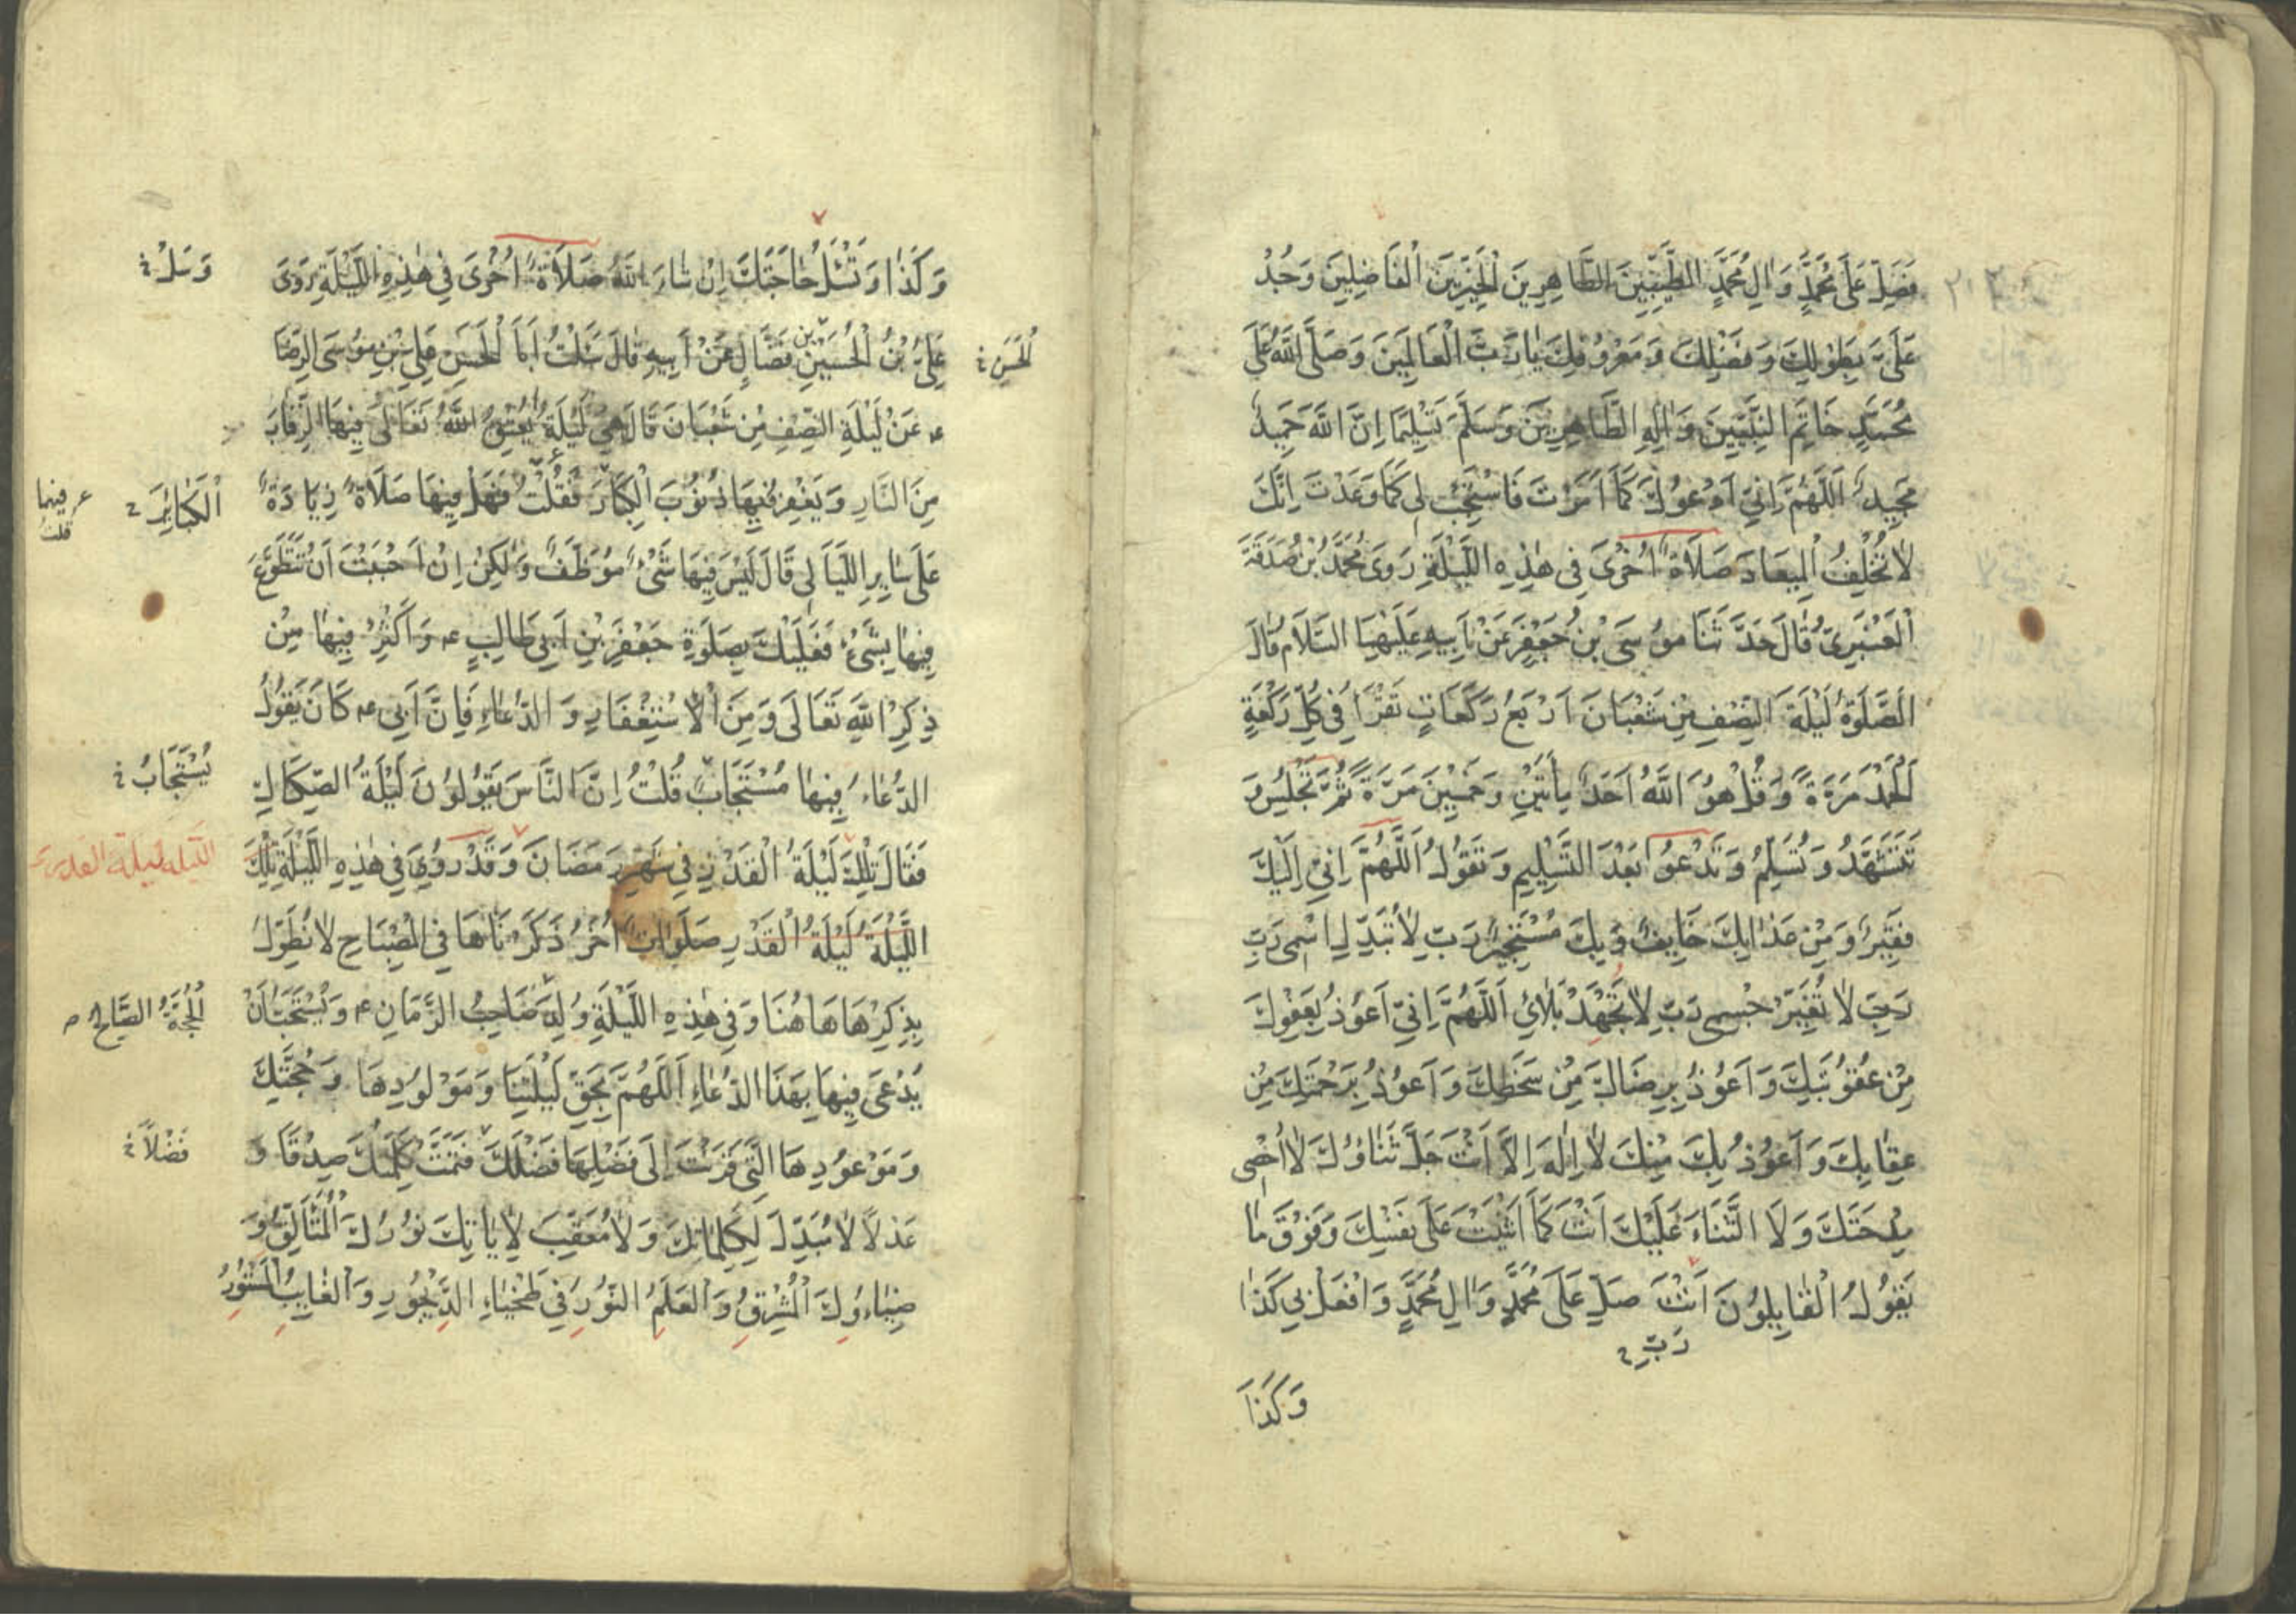 فَصَلِّ عَلَى مُحَمَّدٍ وَاٰلِ مُحَمَّدٍ الطَّيِّبِينَ الطَّاهِرِينَ الْخَيِّرِينَ الْفَاضِلِينَ وَجُدْ
عَلَيَّ بِطَوْلِكَ وَفَضْلِكَ وَمَعْرُوفِكَ يَا رَبَّ الْعَالَمِينَ وَصَلَّى اللّٰهُ عَلَى
مُحَمَّدٍ خَاتَمِ النَّبِيِّينَ وَاٰلِهِ الطَّاهِرِينَ وَسَلَّمَ تَسْلِيمًا اِنَّ اللّٰهَ حَمِيدٌ
مَجِيدٌ اَللّٰهُمَّ اِنِّي اَدْعُوكَ كَمَا اَمَرْتَ فَاسْتَجِبْ لِي كَمَا وَعَدْتَ اِنَّكَ
لَا تُخْلِفُ الْمِيعَادَ صَلَاةٌ اُخْرَى فِي هٰذِهِ اللَّيْلَةِ رَوَى مُحَمَّدُ بْنُ صَدَقَةَ
الْعَنْبَرِيُّ قَالَ حَدَّثَنَا مُوسَى بْنُ جَعْفَرٍ عَنْ اَبِيهِ عَلَيْهِمَا السَّلَامُ قَالَ
اَلصَّلَوةُ لَيْلَةَ النِّصْفِ مِنْ شَعْبَانَ اَرْبَعُ رَكَعَاتٍ تَقْرَأُ فِي كُلِّ رَكْعَةٍ
اَلْحَمْدُ مَرَّةً وَقُلْ هُوَ اللّٰهُ اَحَدٌ مِأَتَيْنِ وَخَمْسِينَ مَرَّةً ثُمَّ تَجْلِسُ وَ
تَتَشَهَّدُ وَتُسَلِّمُ وَتَدْعُو بَعْدَ التَّسْلِيمِ وَتَقُولُ اَللّٰهُمَّ اِنِّي اِلَيْكَ
فَقِيرٌ وَمِنْ عَذَابِكَ خَايِفٌ وَبِكَ مُسْتَجِيرٌ رَبِّ لَا تُبَدِّلْ اِسْمِي رَبِّ
رَبِّ لَا تُغَيِّرْ جِسْمِي رَبِّ لَا تُجْهِدْ بَلَائِي اَللّٰهُمَّ اِنِّي اَعُوذُ بِعَفْوِكَ
مِنْ عُقُوبَتِكَ وَاَعُوذُ بِرِضَاكَ مِنْ سَخَطِكَ وَاَعُوذُ بِرَحْمَتِكَ مِنْ
عِقَابِكَ وَاَعُوذُ بِكَ مِنْكَ لَا اِلٰهَ اِلَّا اَنْتَ جَلَّ ثَنَاؤُكَ لَا اُحْصِي
مِدْحَتَكَ وَلَا الثَّنَاءَ عَلَيْكَ اَنْتَ كَمَا اَثْنَيْتَ عَلَى نَفْسِكَ وَفَوْقَ مَا
يَقُولُ الْقَايِلُونَ اَنْتَ صَلِّ عَلَى مُحَمَّدٍ وَاٰلِ مُحَمَّدٍ وَافْعَلْ بِي كَذَا
رَبِّ
وَكَذَا
وَكَذَا وَتَسْئَلُ حَاجَتَكَ اِنْ شَاءَ اللّٰهُ صَلَاةٌ اُخْرَى فِي هٰذِهِ اللَّيْلَةِ رَوَى
وَسَلْ
عَلِيُّ بْنُ الْحُسَيْنِ بْنِ فَضَّالٍ عَنْ اَبِيهِ قَالَ سَئَلْتُ اَبَا الْحَسَنِ عَلِيِّ بْنِ مُوسَى الرِّضَا
الْحَسَنِ
ع عَنْ لَيْلَةِ النِّصْفِ مِنْ شَعْبَانَ قَالَ هِيَ لَيْلَةٌ يُعْتِقُ اللّٰهُ تَعَالَى فِيهَا الرِّقَابَ
مِنَ النَّارِ وَيَغْفِرُ فِيهَا ذُنُوبَ الْكِبَارَ فَقُلْتُ فَهَلْ فِيهَا صَلَاةٌ زِيَادَةً
اَلْكَبَايِرَ
فِيهَا
قلت
عَلَى سَايِرِ اللَّيَالِي قَالَ لَيْسَ فِيهَا شَيْءٌ مُوَظَّفٌ وَلٰكِنْ اِنْ اَحْبَبْتَ اَنْ تَتَطَوَّعَ
فِيهَا بِشَيْءٍ فَعَلَيْكَ بِصَلَوةِ جَعْفَرِ بْنِ اَبِي طَالِبٍ ع وَاَكْثِرْ فِيهَا مِنْ
ذِكْرِ اللّٰهِ تَعَالَى وَمِنَ الْاِسْتِغْفَارِ وَالدُّعَاءِ فَاِنَّ اَبِي ع كَانَ يَقُولُ
الدُّعَاءُ فِيهَا مُسْتَجَابٌ قُلْتُ اِنَّ النَّاسَ يَقُولُونَ لَيْلَةُ الصِّكَاكِ
يُسْتَجَابُ
فَقَالَ تِلْكَ لَيْلَةُ الْقَدْرِ فِي شَهْرِ رَمَضَانَ وَقَدْ رُوِيَ فِي هٰذِهِ اللَّيْلَةِ تِلْكَ
اللَّيْلَةُ لَيْلَةُ الْقَدْرِ صَلَوَاتٌ اُخَرُ ذَكَرْنَاهَا فِي الْمِصْبَاحِ لَا نُطَوِّلُ
الليلة ليلة القدر
بِذِكْرِهَا هَاهُنَا وَفِي هٰذِهِ اللَّيْلَةِ وُلِدَ صَاحِبُ الزَّمَانِ ع وَيُسْتَحَبُّ اَنْ
الْحُجَّةُ الصَّالِحُ
يُدْعَى فِيهَا بِهَذَا الدُّعَاءِ اَللّٰهُمَّ بِحَقِّ لَيْلَتِنَا وَمَوْلُودِهَا وَحُجَّتِكَ
وَمَوْعُودِهَا الَّتِي قَرَنْتَ اِلَى فَضْلِهَا فَضْلَكَ فَتَمَّتْ كَلِمَتُكَ صِدْقًا وَ
فَضْلاً
عَدْلاً لَا مُبَدِّلَ لِكَلِمَاتِكَ وَلَا مُعَقِّبَ لِاٰيَاتِكَ نُورُكَ الْمُتَأَلِّقُ وَ
ضِيَاؤُكَ الْمُشْرِقُ وَالْعَلَمُ النُّورُ فِي طَخْيَاءِ الدَّيْجُورِ وَالْغَايِبُ الْمَسْتُورُ